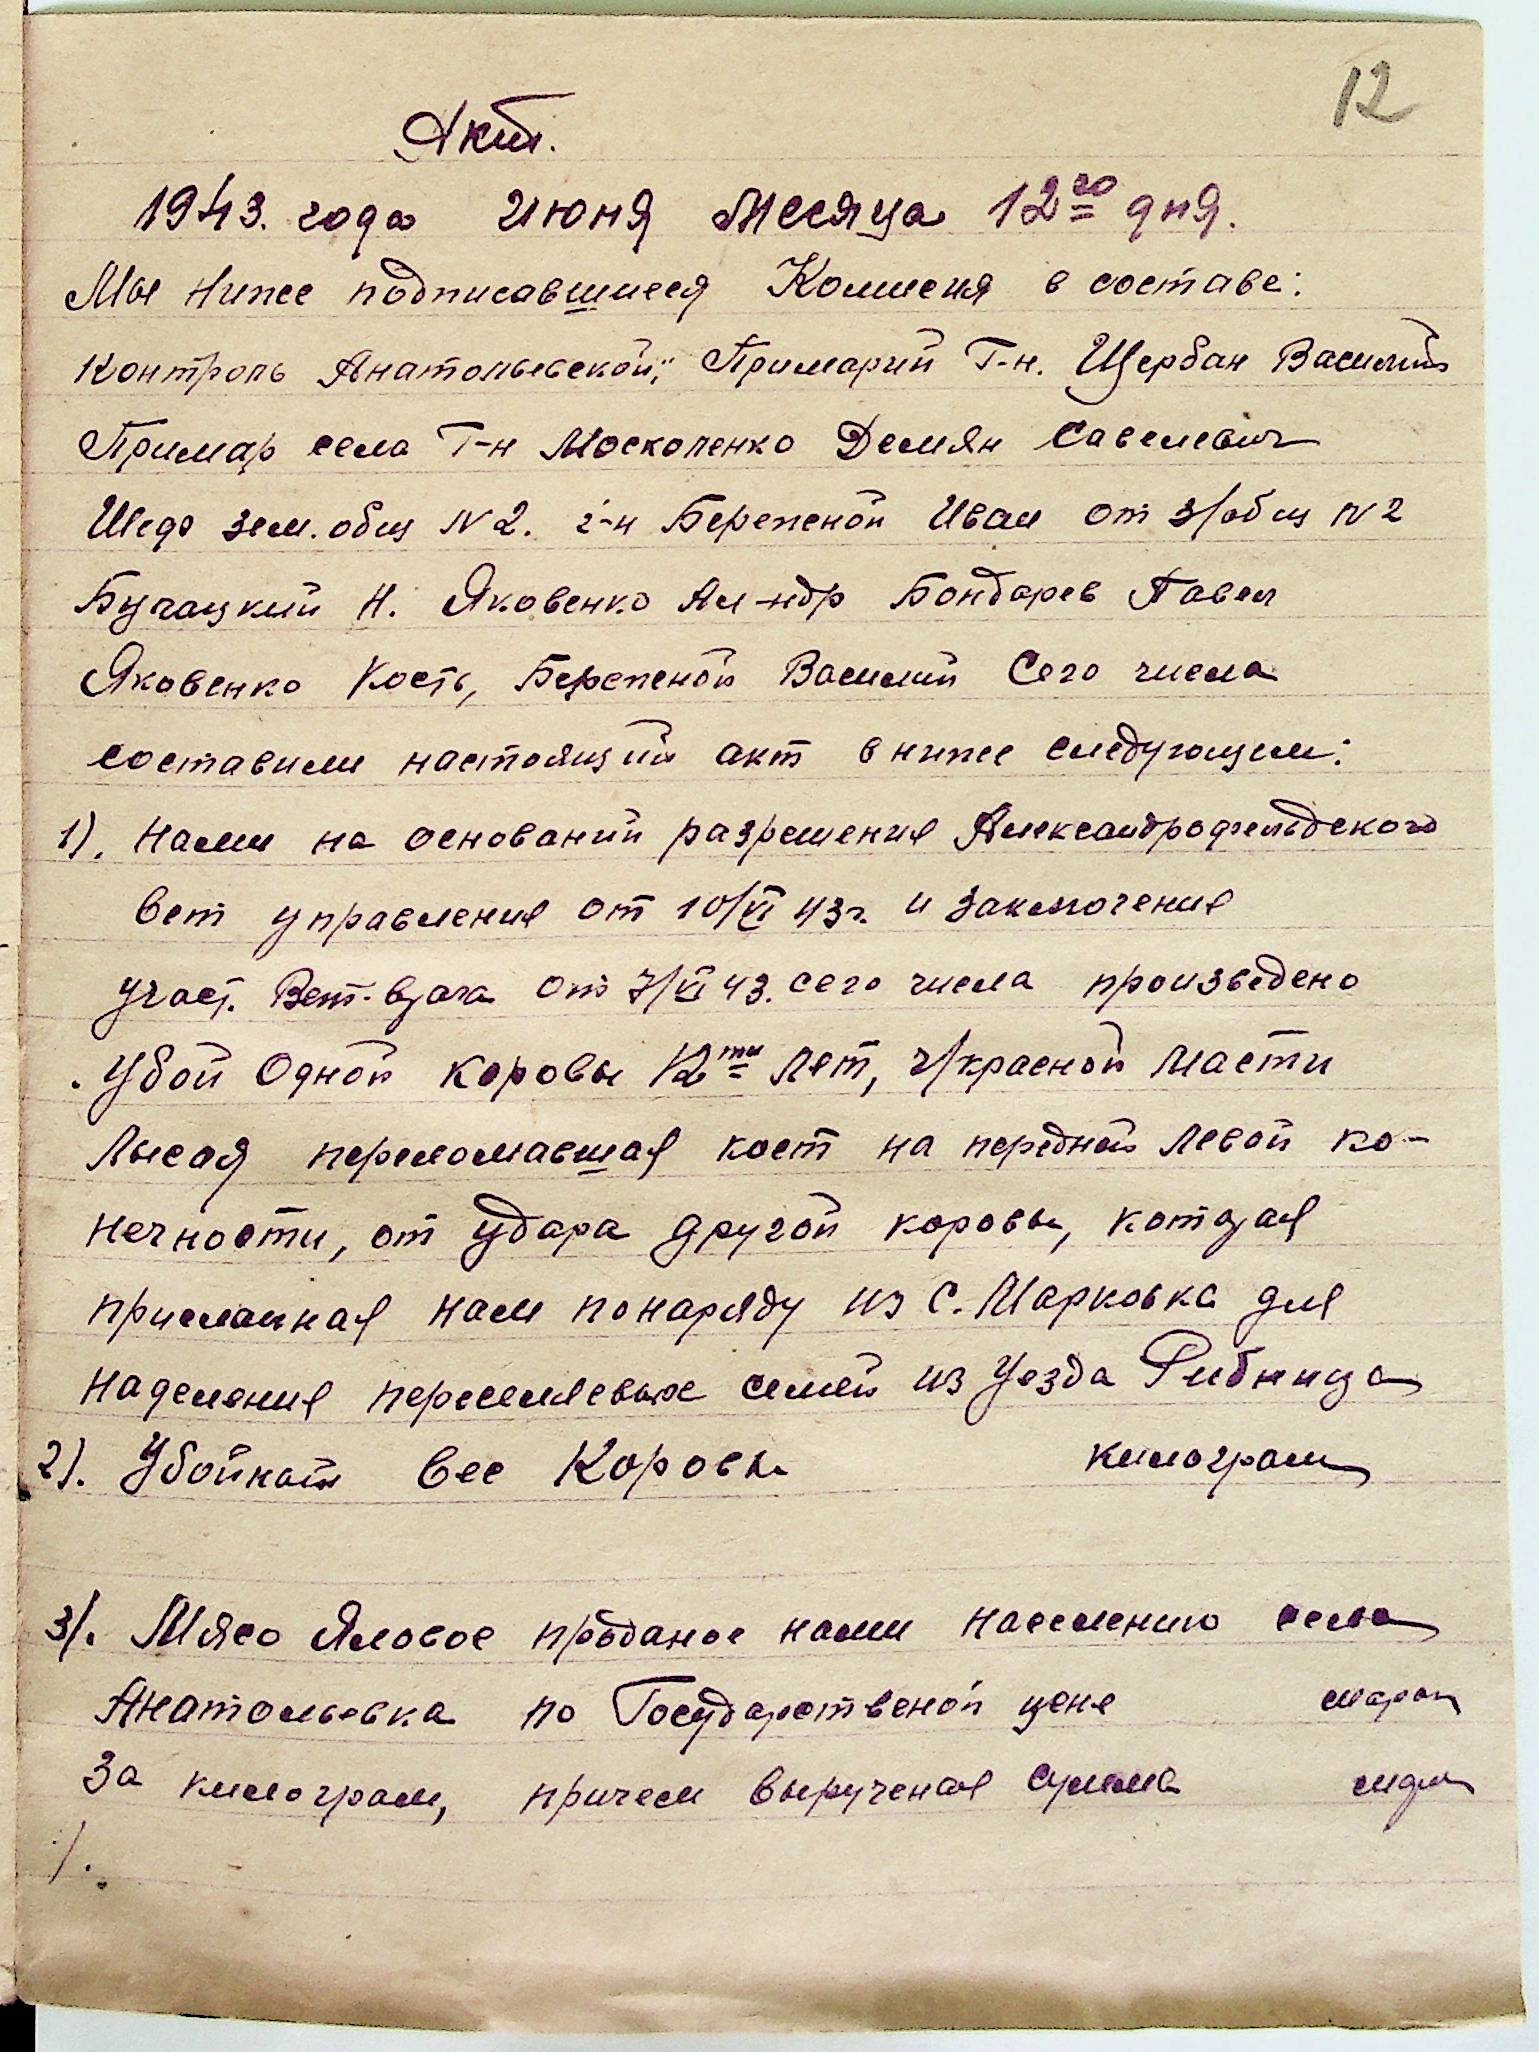 12
Акт.
1943. года июня месяца 12го дня.
Мы ниже подписавшиеся Комисия в составе:
Контроль Анатольевской, Примарий Г-н. Щербан Василий
Примар села Г-н Москоленко Демян Савелевич
Шеф зем. общ N 2. г-н Береженой Иван от з/общ N 2
Бучацкий Н. Яковенко Ал-ндр Бондарев Павел
Яковенко Кость, Береженой Василий Сего числа
составили настоящий акт в ниже следующем:
1). Нами на оснований разрешения Александрофельдского
вет управления от 10/VI 43г. и заключения
участ. Вет-врача от 7/VI 43. сего числа произведено
убой одной коровы 12ти лет, ч/красной масти
лысая переломавшая кост на передней левой ко-
нечности, от удара другой коровы, которая
присланная нам понаряду из с. Марковка для
наделения переселяевых семей из уезда Рибница
2). Убойной вес Коровы килограм
3/. Мясо яловое проданое нами населению села
Анатольевка по Государственой цене марок
За килограм, причем вырученая сумма марок
/.